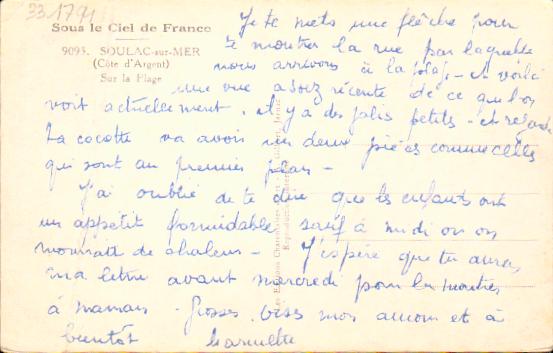 33 1791
Sous le Ciel de France
9093. SOULAC-sur-MER
(Côte d'Argent)
Sur la Plage
Je te mets une flèche pour
te montrer la rue par laquelle
nous arrivons à la plage - et voilà
une vue assez récente de ce que l'on
voit actuellement. il y a des jolis petits - et regarde
ta cocotte va avoir un deux pièces comme celles
qui sont au premier plan -
J'ai oublié de te dire que les enfants ont
un appétit formidable sauf à midi où on
mourrait de chaleur - J'espère que tu auras
ma lettre avant mercredi pour la montrer
à maman - Grosses bises mon amour et à
bientôt
Les Editions
Reproduction